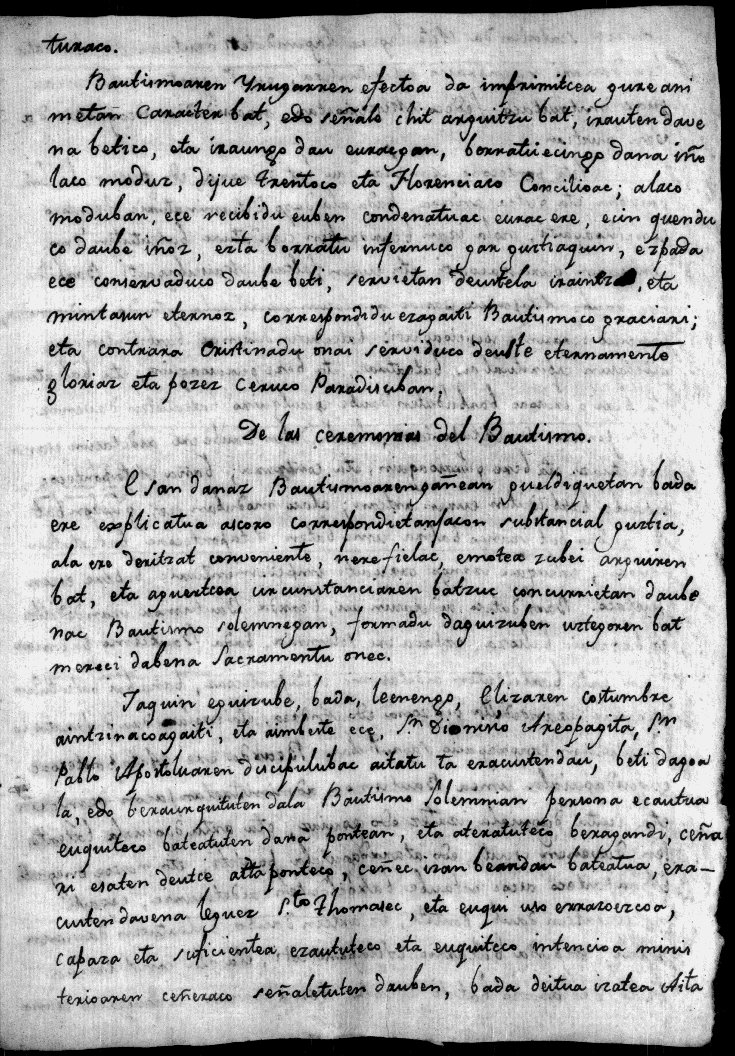 turaco.
Bautismoaren Yrugarren efectoa da imprimitcea gure ani
metan Caracter bat, edo señale chit arguitzu bat, irauten dave
na betico, eta iraungo dau euragan, borratu ecingo dana iño
laco moduz, dijue Trentoco eta Florenciaco Concilioac; alaco
moduban, ece recibidu euben condenatuac eurac ere, ecin quendu
co daube iñoz, ezta borratu infernuco gar guztiaquin, ezpada
ece conservaduco daube beti, servietan deustela iraintza, eta
mintasun eternoz, correspondidu ezagaiti Bautismoco graciari;
eta contrara Cristinadu onai serviduco deuste eternamente
gloriaz eta pozez Ceruco Paradisuban,
De las ceremonias del Bautismo.
Esan danaz Bautismoaren gañean gueldiquetan bada
ere explicatua ascoro correspondietan jacon substancial guztia,
ala ere deritzat conveniente, nere fielac, emotea zubei arguiren
bat, eta aguertcea circunstanciaren batzuc concurrietan daube
nac Bautismo solemnegan, formadu daguizuben uztegoren bat
mereci dabena Sacramentu onec.
Jaquin eguizube, bada, leenengo, Elizaren costumbre
aintzinacoagaiti, eta aimbeste ece, Sn Dionisio Areopagita, Sn
Pablo Apostoluaren discipulubac aitatu ta eracusten dau, beti dagoa
la, edo beraurquituten dala Bautismo Solemnian persona ecautua
euquiteco bateatuten dana pontean, eta ateratuteco beragandi, ceña
ri esaten deutce atta ponteco, ceñec izan bear dau bateatua, era-
custen davena leguez S.to Thomasec, eta euqui uso errazoezcoa,
capaza eta suficientea ezaututeco eta euquiteco intencioa minis
terioaren ceñeraco señaletuten dauben, bada deitua izatea Aita